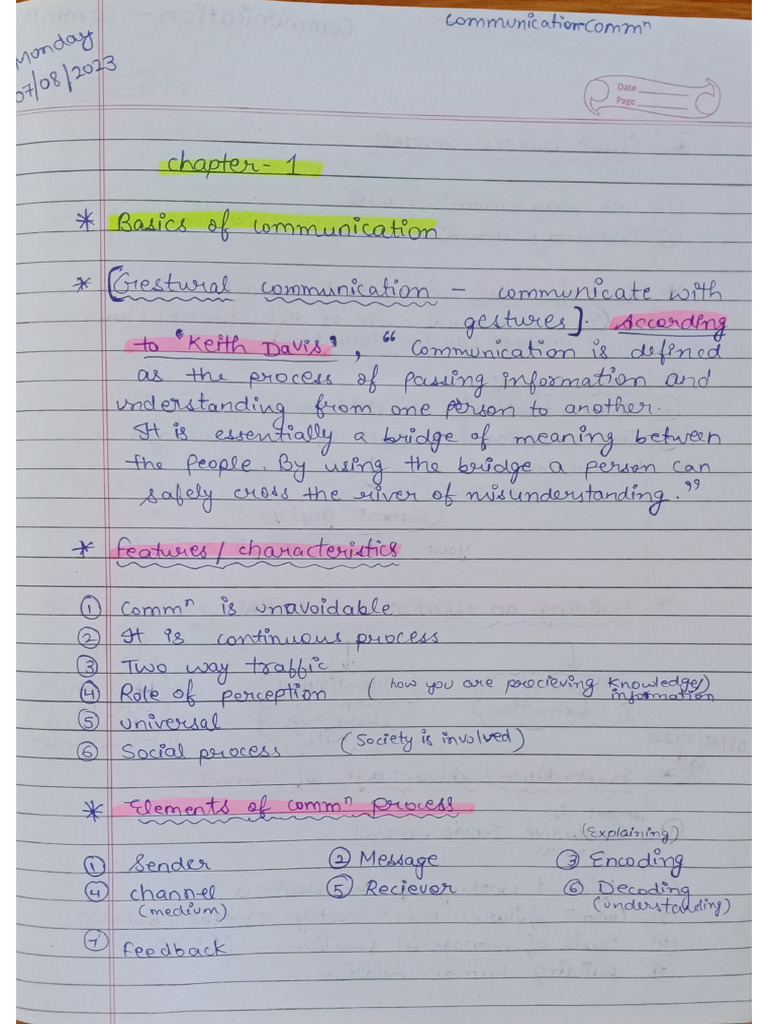 Communication-Commⁿ
Monday
07/08/2023
Date
Page
Chapter - 1
* Basics of communication
* [Gestural communication - communicate with
gestures]. According
to "Keith Davis", "Communication is defined
as the process of passing information and
understanding from one person to another.
It is essentially a bridge of meaning between
the people. By using the bridge a person can
safely cross the river of misunderstanding."
* features / characteristics
① Commⁿ is unavoidable
② It is continuous process
③ Two way traffic
④ Role of perception ( how you are procieving knowledge/)
information
⑤ universal
⑥ Social process (Society is involved)
* Elements of commⁿ process
(Explaining)
① Sender ② Message ③ Encoding
④ channel ⑤ Reciever ⑥ Decoding
(medium) (understanding)
⑦ feedback